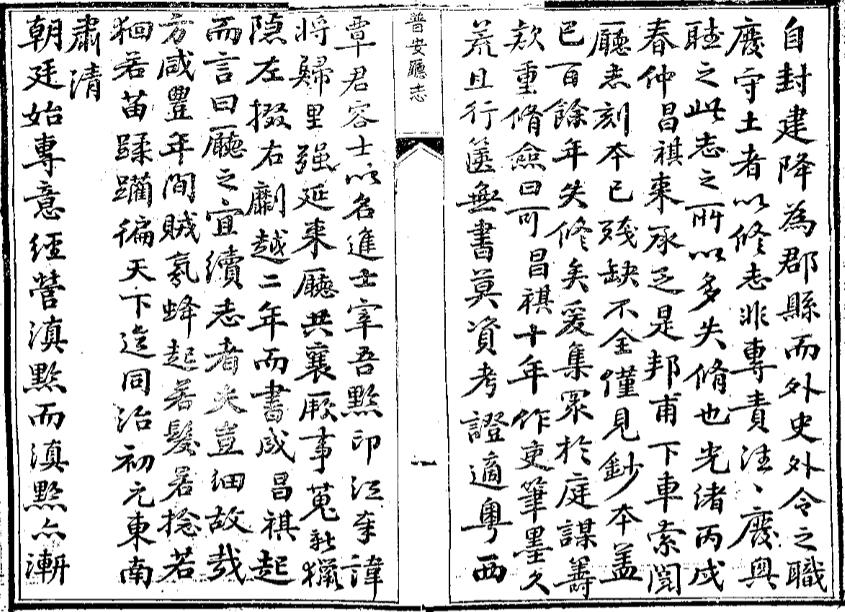 自封建降為郡縣而外史外令之職
廢守土者以修志非專責往〻廢與
聴之此志之所以多失脩也光緒丙戌
春仲昌祺來承乏是邦甫下車索閲
廳志刻本已殘缺不全僅見鈔本蓋
已百餘年失修矣爰集眾於庭謀籌
欵重脩僉曰可昌祺十年作吏筆墨久
荒且行篋無書莫資考證適粤西
普安廳志
一
覃君容士以名進士宰吾黔印江奉諱
將歸里强延來廳共襄厥事蒐
隐左掇右劘越二年而書成昌祺起
而言曰廳之宜續志者夫豈細故哉
方咸豐年間賊氛蜂起若髮若捻若
狪若苗蹂躪徧天下迨同治初元東南
肅清
朝廷始專意經營滇黔而滇黔亦漸